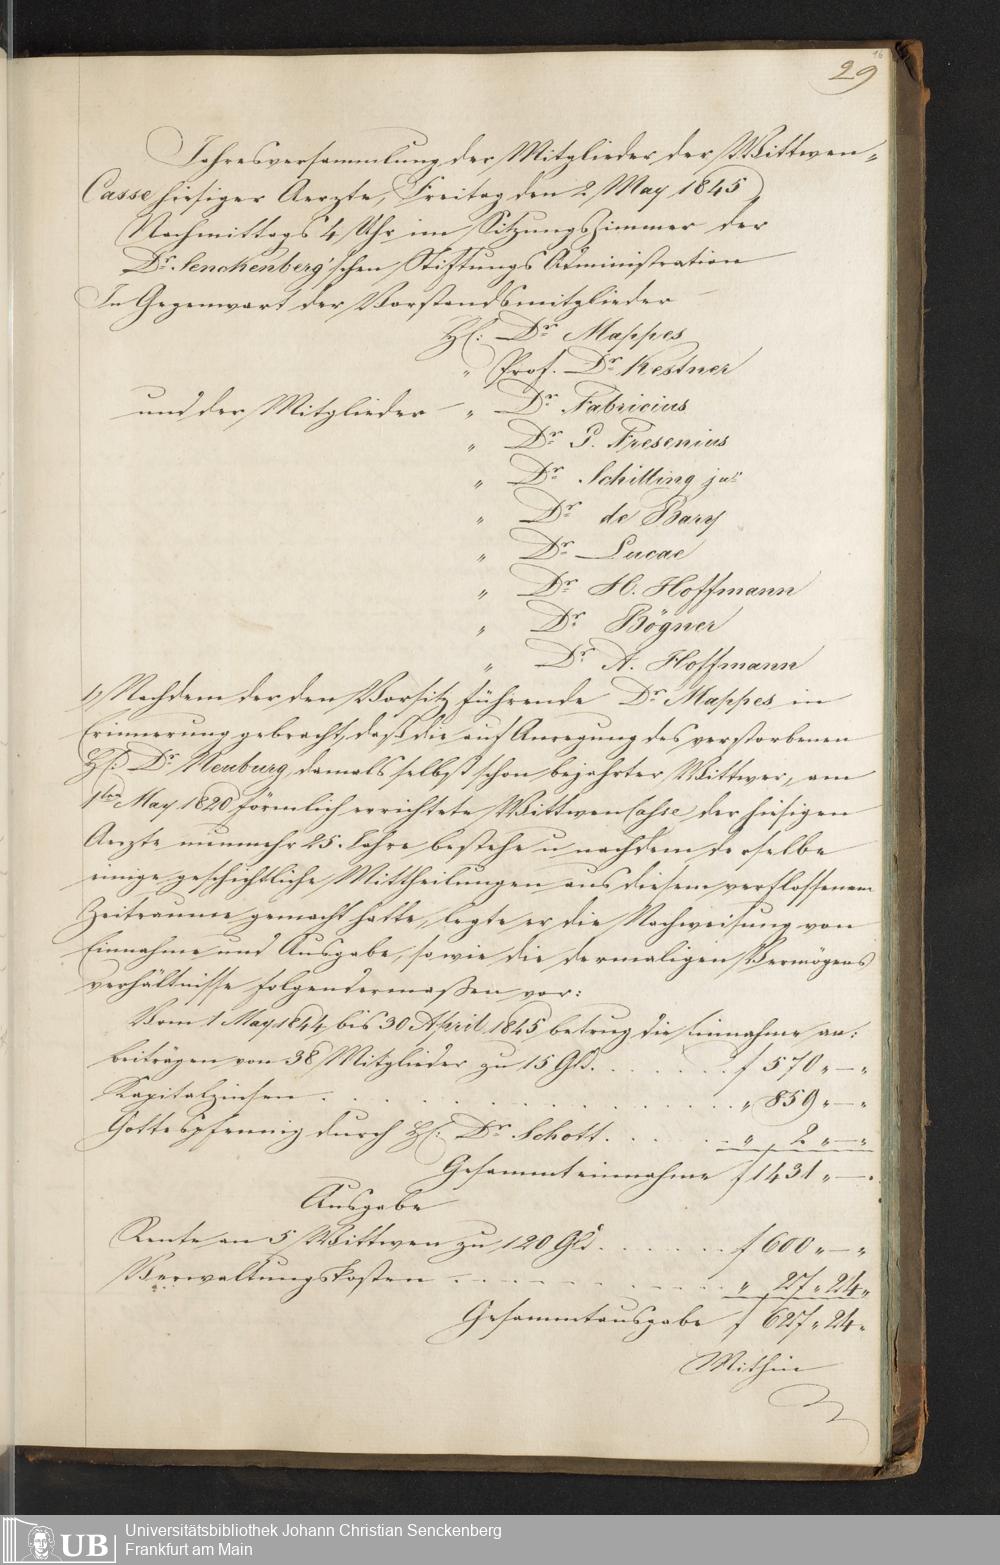 16
29
Jahresversammlung der Mitglieder der Wittwen-
Casse hiesiger Aerzte, Freitag den 2 May 1845
Nachmittags 4 Uhr im Sitzungszimmer der
Dr. Senckenberg'schen Stiftungs Administration
In Gegenwart der Vorstandsmitglieder
H: Dr Mappes
" Prof. Dr Kestner
und der Mitglieder - " Dr Fabricius
" Dr G. Fresenius
" Dr Schilling jur
" Dr de Bary
" Dr Lucae
" Dr H. Hoffmann
" Dr Bögner
" Dr A. Hoffmann
1, Nachdem der den Vorsitz führende Dr Mappes in
Erinnerung gebracht, daß die auf Anregung des verstorbenen
H: Dr Neuburg, damals selbst schon bejahrter Wittwer, am
1ten May 1820 förmlich errichtete Wittwen Casse der hiesigen
Aerzte nunmehr 25. Jahre bestehe u nachdem derselbe
einige geschichtliche Mittheilungen aus diesem verflossenem
Zeitraume gemacht hatte, legte er die Nachweisung von
Einnahme und Ausgabe, so wie die dermaligen Vermögens
verhältnisse folgendermaßen vor:
Vom 1 May 1844 bis 30 April 1845 betrug die Einnahme an:
beiträgen von 38 Mitglieder zu 15 Gld. . . . . . . f 570 " — "
Kapitalzinsen . . . . . . . . . . . . . " 859 " — "
Gottespfennig durch H: Dr Schott . . . . . . " 2 " — "
Gesammteinnahme f 1431 " — "
Ausgabe
Rente an 5 Wittwen zu 120 Gld . . . . . . f 600 " — "
Verwaltungskosten . . . . . . . . . . . " 27 " 24 "
Gesammtausgabe f 627 " 24 "
Mithin
UB
Universitätsbibliothek Johann Christian Senckenberg
Frankfurt am Main